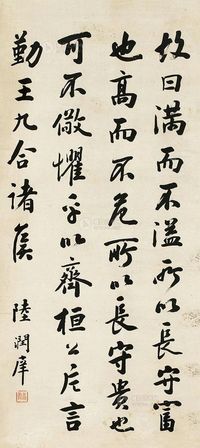 故曰满而不溢所以長守富
也高而不危所以長守貴也
可不儆懼乎以齊桓公片言
勤王九合诸侯
陸潤庠